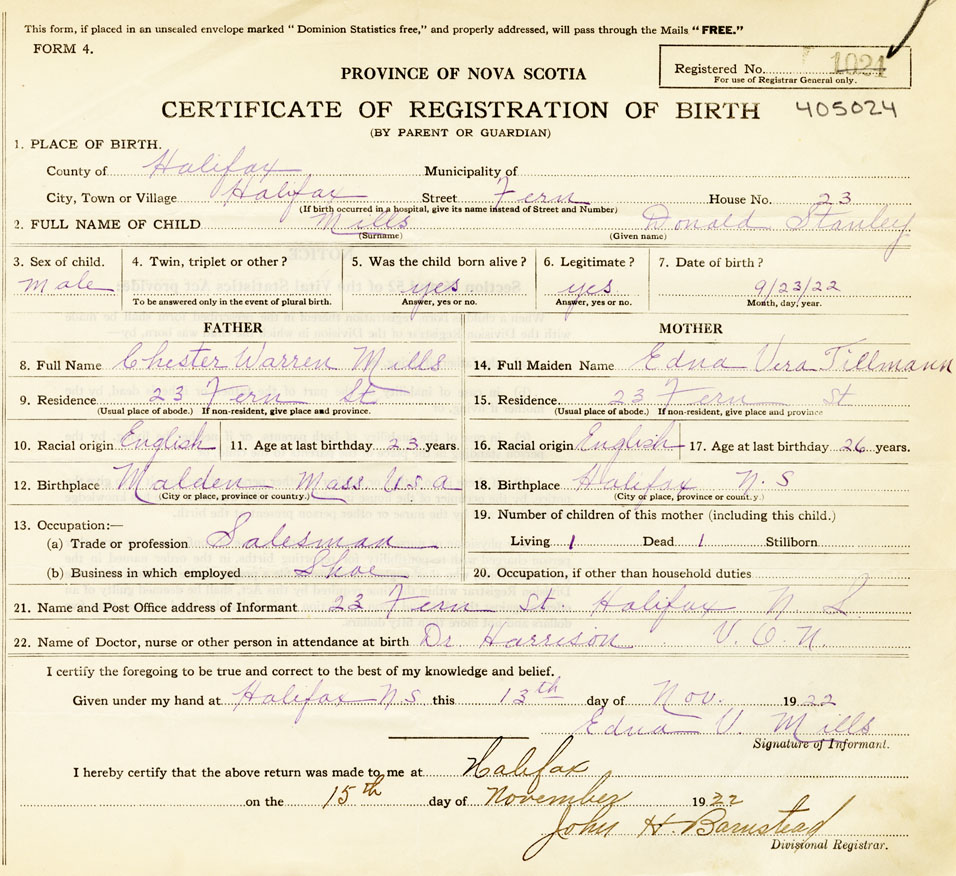 This form, if placed in an unsealed envelope marked "Dominion Statistics free," and properly addressed, will pass through the Mails "FREE."
FORM 4.
Registered No. 1024
For use of Registrar General only.
PROVINCE OF NOVA SCOTIA
CERTIFICATE OF REGISTRATION OF BIRTH 405024
(BY PARENT OR GUARDIAN)
1. PLACE OF BIRTH.
County of Halifax Municipality of
City, Town or Village Halifax Street Fern House No. 23
(If birth occurred in a hospital, give its name instead of Street and Number)
2. FULL NAME OF CHILD Mills Donald Stanley
(Surname) (Given name)
3. Sex of child. 4. Twin, triplet or other? 5. Was the child born alive? 6. Legitimate? 7. Date of birth?
Male yes yes 9/23/22
To be answered only in the event of plural birth. Answer, yes or no. Answer, yes or no. Month, day, year.
FATHER MOTHER
8. Full Name Chester Warren Mills 14. Full Maiden Name Edna Vera Tillmann
9. Residence 23 Fern St 15. Residence 23 Fern St
(Usual place of abode.) If non-resident, give place and province. (Usual place of abode.) If non-resident, give place and province
10. Racial origin English 11. Age at last birthday 23 years. 16. Racial origin English 17. Age at last birthday 26 years.
12. Birthplace Malden Mass U.S.A 18. Birthplace Halifax N.S
(City or place, province or country.) (City or place, province or count.y.)
13. Occupation:— 19. Number of children of this mother (including this child.)
(a) Trade or profession Salesman Living 1 Dead 1 Stillborn
(b) Business in which employed Shoe 20. Occupation, if other than household duties
21. Name and Post Office address of Informant 23 Fern St Halifax N S
22. Name of Doctor, nurse or other person in attendance at birth Dr. Harrison V.O.N.
I certify the foregoing to be true and correct to the best of my knowledge and belief.
Given under my hand at Halifax N.S this 13th day of Nov. 1922
Edna V. Mills
Signature of Informant.
I hereby certify that the above return was made to me at Halifax
on the 15th day of November 1922
John H Barnstead
Divisional Registrar.